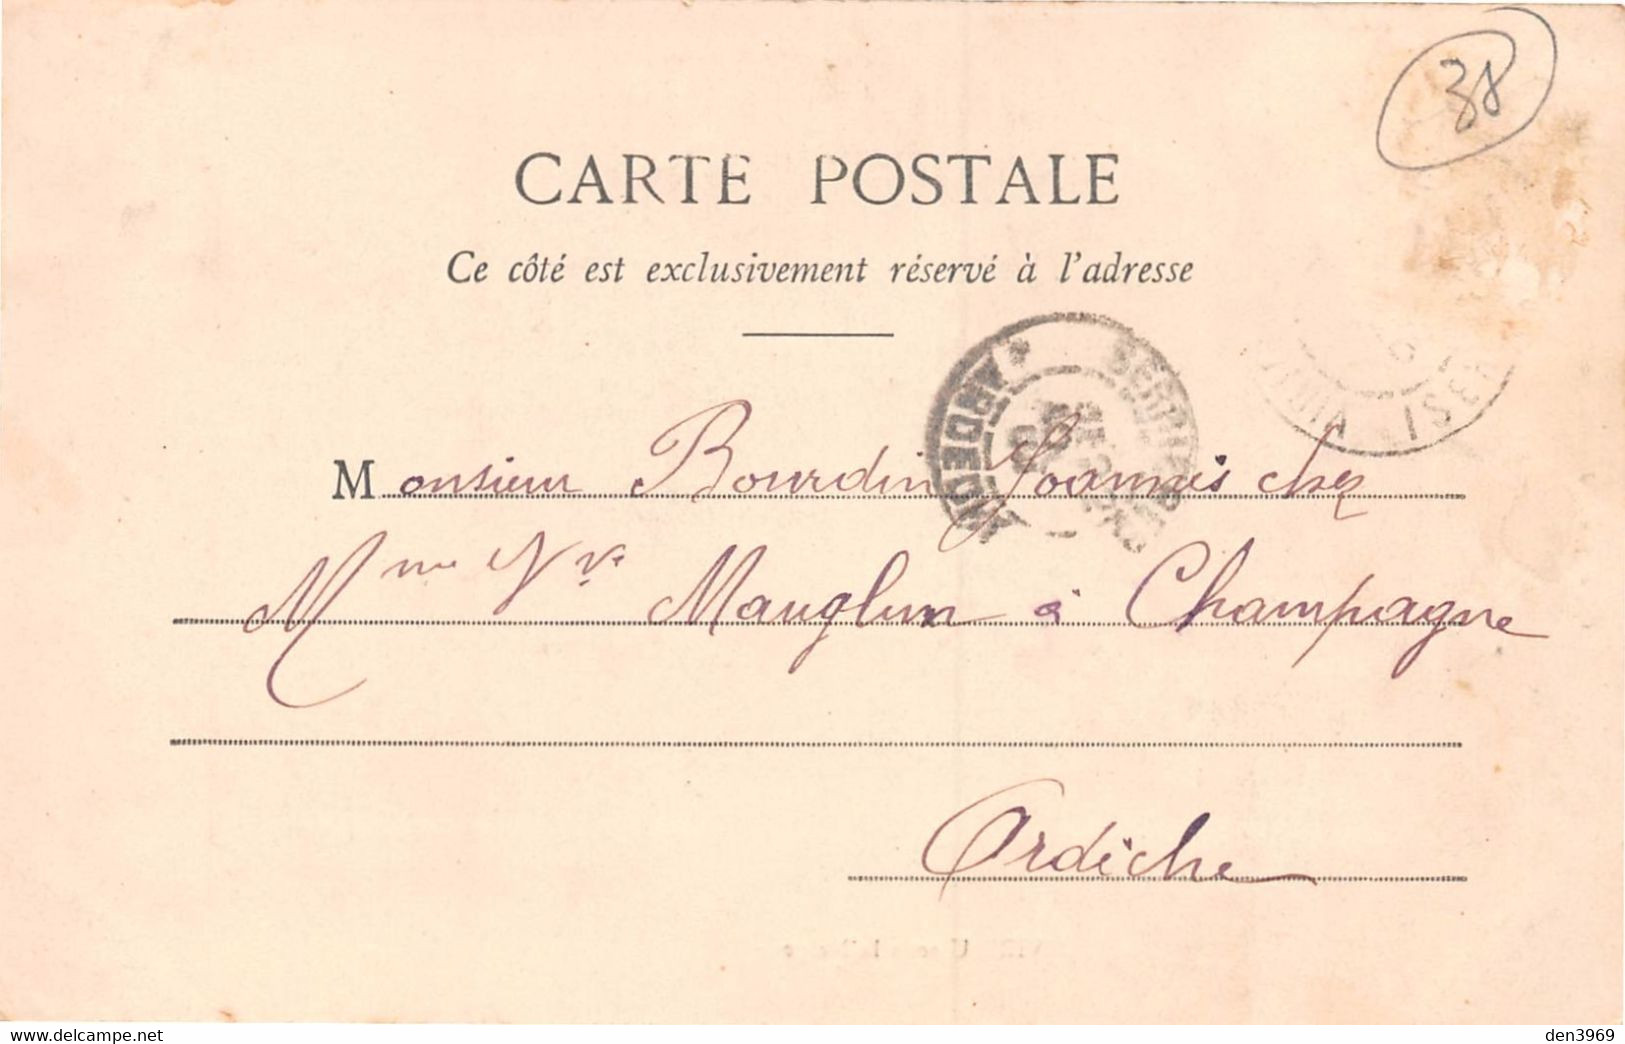 38
CARTE POSTALE
Ce côté est exclusivement réservé à l'adresse
ARDECHE
Monsieur Bourdin Joannis chez
Mme Vve Mauglun à Champagne
Ardèche
www.delcampe.net
den3969